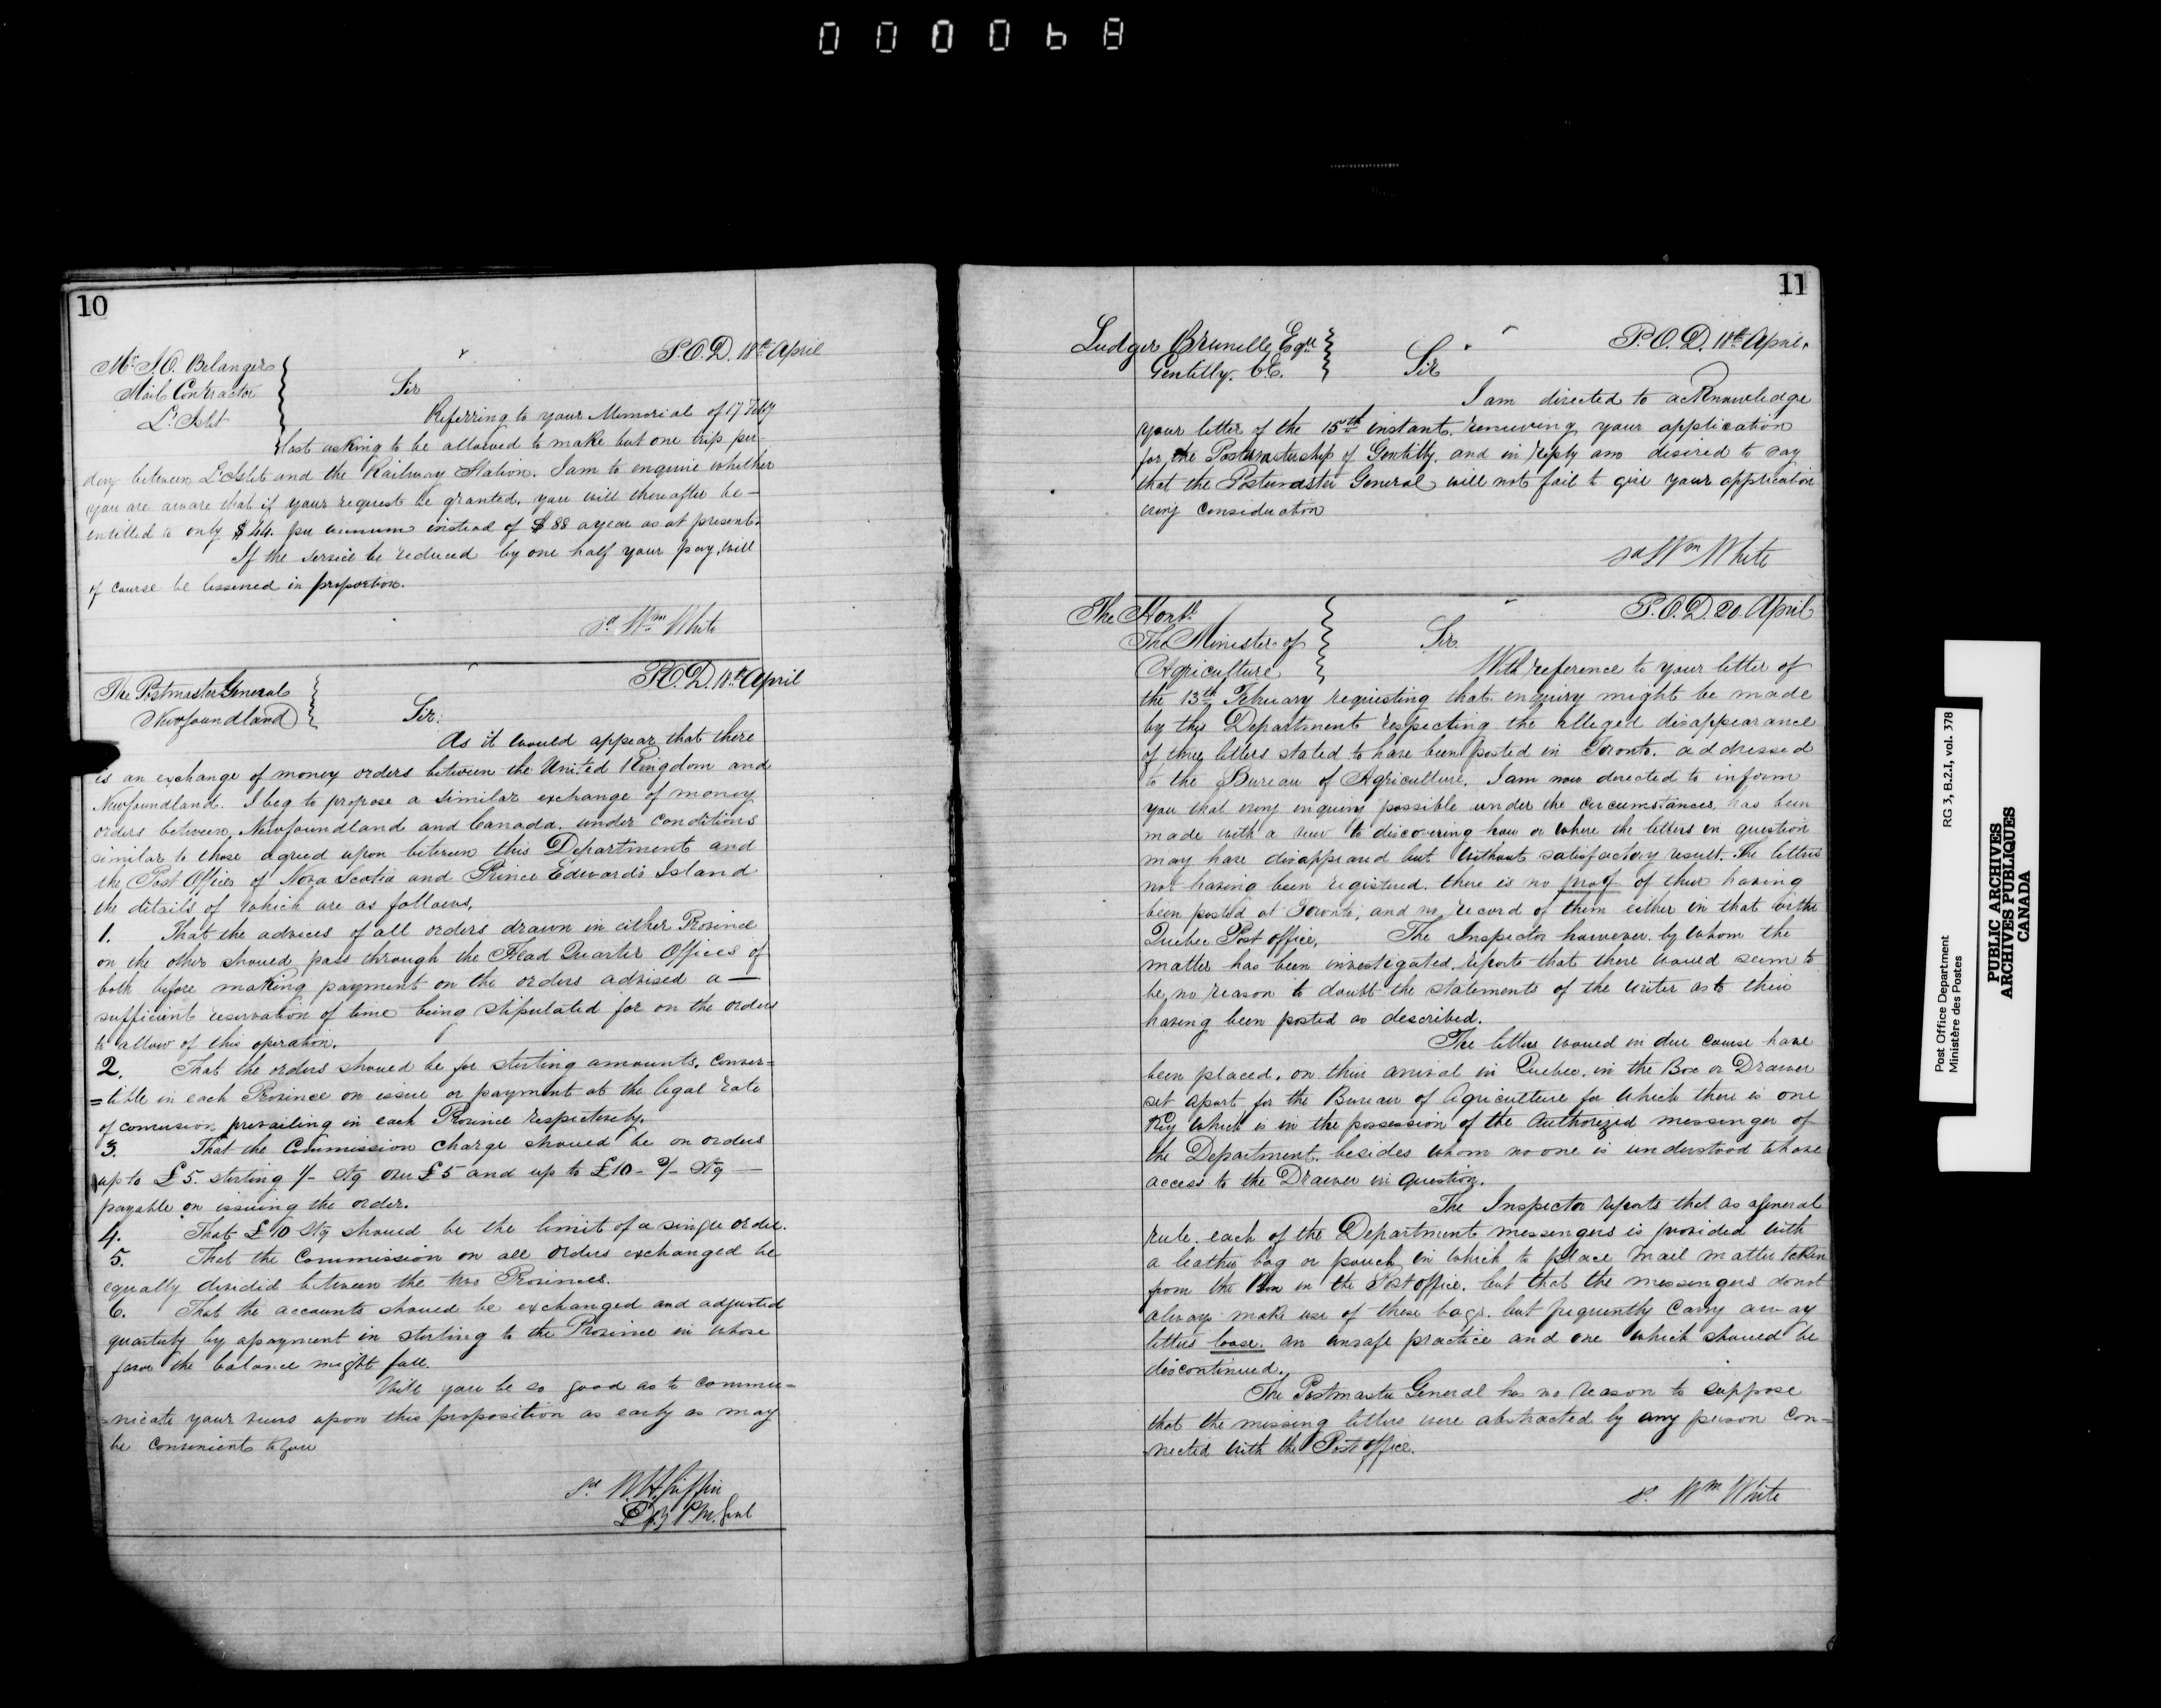 000068
10
P.O.D. 18th April
Mr. J.O. Belanger
Mail Contractor
L'Islet
Sir
Referring to your Memorial of 17 Feby
last asking to be allowed to make but one trip per
day between L'Islet and the Railway Station. I am to enquire whether
you are aware that if your request be granted, you will thereafter be—
entitled to only $44. per annum instead of $88 a year as at present.
If the service be reduced by one half your pay, will
of course be lessened in proportion.
sd Wm White
P.O.D. 18th April
The Postmaster General
Newfoundland
Sir.
As it would appear that there
is an exchange of money orders between the United Kingdom and
Newfoundland. I beg to propose a similar exchange of money
orders between Newfoundland and Canada. under conditions
similar to those agreed upon between this Department and
the Post Offices of Nova Scotia and Prince Edward's Island
the details of which are as follows,
1. That the advices of all orders drawn in either Province
on the other should pass through the Head Quarter Offices of
both before making payment on the orders advised a—
sufficient reservation of time being stipulated for on the orders
to allow of this operation.
2. That the orders should be for sterling amounts, conver=
=tible in each Province on issue or payment at the legal rate
of conversion prevailing in each Province respectively.
3. That the Commission charge should be on orders
up to £5. sterling 1/- Stg over £5 and up to £10 - 2/- Stg —
payable on issuing the order.
4. That £10 Stg should be the limit of a single order.
5. That the Commission on all orders exchanged be
equally divided between the two Provinces.
6. That the accounts should be exchanged and adjusted
quarterly by a payment in sterling to the Province in whose
favor the balance might fall.
Will you be so good as to commu=
=nicate your views upon this proposition as early as may
be convenient to you
sd W.H. Griffin
Dpy P.M. Genl
11
P.O.D. 18th April.
Ludger Brunelle, Esqre
Gentilly. C.E.
Sir
I am directed to acknowledge
your letter of the 15th instant. renewing your application
for the Postmastership of Gentilly. and in reply am desired to say
that the Postmaster General will not fail to give your application
every consideration
sd Wm White
P.O.D. 20 April
The Honble
The Minister of
Agriculture
Sir.
With reference to your letter of
the 13th February requesting that enquiry might be made
by this Department respecting the alleged disappearance
of three letters stated to have been posted in Toronto. addressed
to the Bureau of Agriculture. I am now directed to inform
you that every enquiry possible under the circumstances, has been
made with a view to discovering how or where the letters in question
may have disappeared but without satisfactory result. The letters
not having been registered. there is no proof of their having
been posted at Toronto, and no record of them either in that or the
Quebec Post office, The Inspector however. by whom the
matter has been investigated, reports that there would seem to
be, no reason to doubt the statements of the writer as to their
having been posted as described.
The letters would in due course have
been placed, on their arrival in Quebec. in the Box or Drawer
set apart for the Bureau of Agriculture for which there is one
Key which is in the possession of the Authorized messenger of
the Department, besides whom no one is understood to have
access to the Drawer in question.
The Inspector reports that as a general
rule. each of the Department messengers is provided with
a leather bag or pouch in which to place mail matter taken
from the Box in the Post office. but that the messengers do not
always make use of these bags. but frequently carry away
letters loose. an unsafe practice and one which should be
discontinued.
The Postmaster General has no reason to suppose
that the missing letters were abstracted by any person con=
=nected with the Post office.
sd. Wm White
Post Office Department RG 3, B.2.1, vol. 378
Ministère des Postes
PUBLIC ARCHIVES
ARCHIVES PUBLIQUES
CANADA